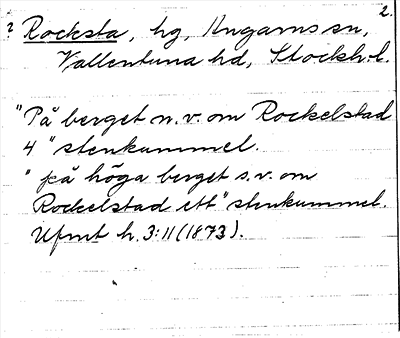 2.
? Rocksta, hg, Ungarns sn,
Vallentuna hd, Stockh.l.
"På berget n.v. om Rockelstad
4 "stenkummel.
" på höga berget s.v. om
Rockelstad ett "stenkummel.
Ufmt h. 3:11 (1873).